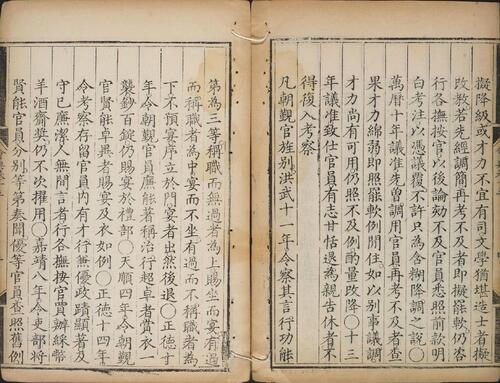 擬降級或才力不宜有司文學猶堪造士者擬
改教若先經調簡再考不及者即擬罷軟仍咨
行各撫按官以後論劾不及官員悉照前款明
白考注以憑議覆不許只為含糊降調之說○
萬曆十年議准先曾調用官員再考不及者查
果才力綿弱即照罷軟例閒住如以別事議調
才力尚有可用仍照不及例酌量改降○十三
年議准致仕官員有志甘恬退為親古休者不
得復入考察
凡朝覲官旌別洪武十一年令察其言行功能
第為三等稱職而無過者為上賜坐而宴有過
而稱職者為中宴而不坐有過而不稱職者為
下不預宴序立於門宴者出然後退○正德十
年令朝覲官員廉能著稱治行超卓者賞衣一
襲鈔百錠仍賜宴於禮部○天順四年令朝覲
官賢能卓異者賜宴及衣如例○正德十四年
令考察存留官員內有才行兼優政蹟顯著及
守巳廉潔人無間言者行各撫按官買辦綵幣
羊酒齎奬仍不次擢用○嘉靖八年令吏部將
賢能官員分別等第奏聞優等官員查照舊例